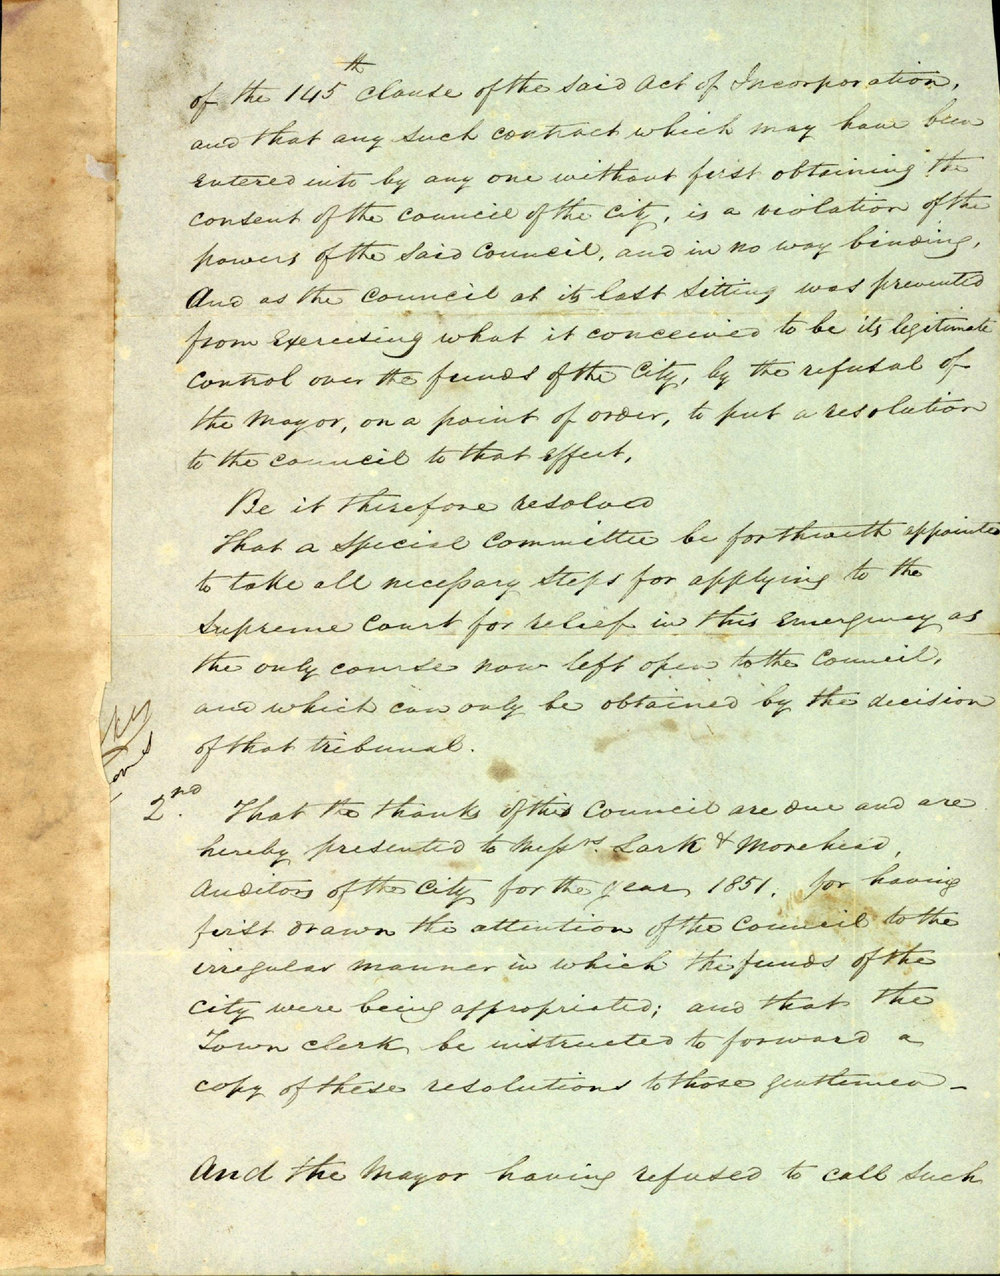 of the 145th Clause of the said Act of Incorporation,
and that any such contract which may have been
Entered into by any one without first obtaining the
consent of the Council of the City, is a violation of the
powers of the said Council, and in no way binding,
And as the Council at its last Sitting was prevented
from Exercising what it conceived to be its legitimate
Control over the funds of the City, by the refusal of
the Mayor, on a point of order, to put a resolution
to the Council to that Effect,
Be it therefore resolved
That a Special Committee be forthwith appointed
to take all necessary Steps for applying to the
Supreme Court for relief in this Emergency as
the only course now left open to the Council,
and which can only be obtained by the decision
of that tribunal.
2nd. That the thanks of this Council are due and are
hereby presented to Messrs. Lark & Morehead,
Auditors of the City for the year 1851, for having
first drawn the attention of the Council to the
irregular manner in which the funds of the
City were being appropriated; and that the
Town Clerk be instructed to forward a
copy of these resolutions to those gentlemen —
And the Mayor having refused to call Such